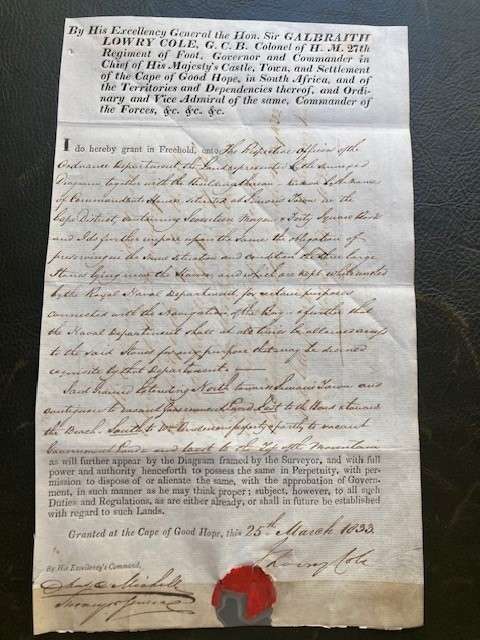 By His Excellency General the Hon. Sir GALBRAITH
LOWRY COLE, G. C. B. Colonel of H. M. 27th
Regiment of Foot, Governor and Commander in
Chief of His Majesty's Castle, Town, and Settlement
of the Cape of Good Hope, in South Africa, and of
the Territories and Dependencies thereof, and Ordi-
nary and Vice Admiral of the same, Commander of
the Forces, &c. &c. &c.
I do hereby grant in Freehold, unto The Respective Officers of the
Ordnance Department the Land represented in the annexed
Diagram together with the Buildings thereon
of Commandants House situated at Simons Town in the
Cape District, containing Square
and I do further impose upon the same the obligation of
preserving in the same situation and condition the three large
Stones lying near the House, and which are kept whitewashed
by the Royal Naval Department, for certain purposes
connected with the Navigation of the Bay, & further that
the Naval Department shall at all times be allowed access
to the said Stones for any purpose that may be deemed
requisite by that Department.
Said Ground Extending North towards Simons Town and
contiguous to vacant Government Land, East to the Road & towards
the Beach, South to property partly to vacant
Government Land, and West to the Mountain
as will further appear by the Diagram framed by the Surveyor, and with full
power and authority henceforth to possess the same in Perpetuity, with per-
mission to dispose of or alienate the same, with the approbation of Govern-
ment, in such manner as he may think proper; subject, however, to all such
Duties and Regulations, as are either already, or shall in future be established
with regard to such Lands.
Granted at the Cape of Good Hope, this 25th March 1833.
Lowry Cole
By His Excellency's Command,
Michell